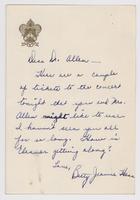 Dear Dr. Allen —
Here are a couple
of tickets to the concert
tonight that you and Mrs.
Allen might like to use.
I haven't seen you all
for so long. How is
Eleanor getting along?
Love,
Betty Jeanne